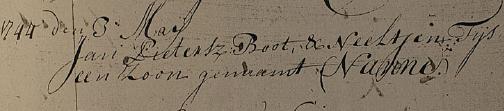 1744 den 3 May
Jan Pietersz Boot, & Neeltjen Tijs
een Zoon genaamt